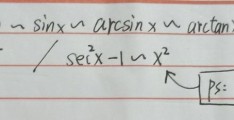 ~ sinx ~ arcsinx ~ arctan
/ sec²x-1 ~ x²
ps: